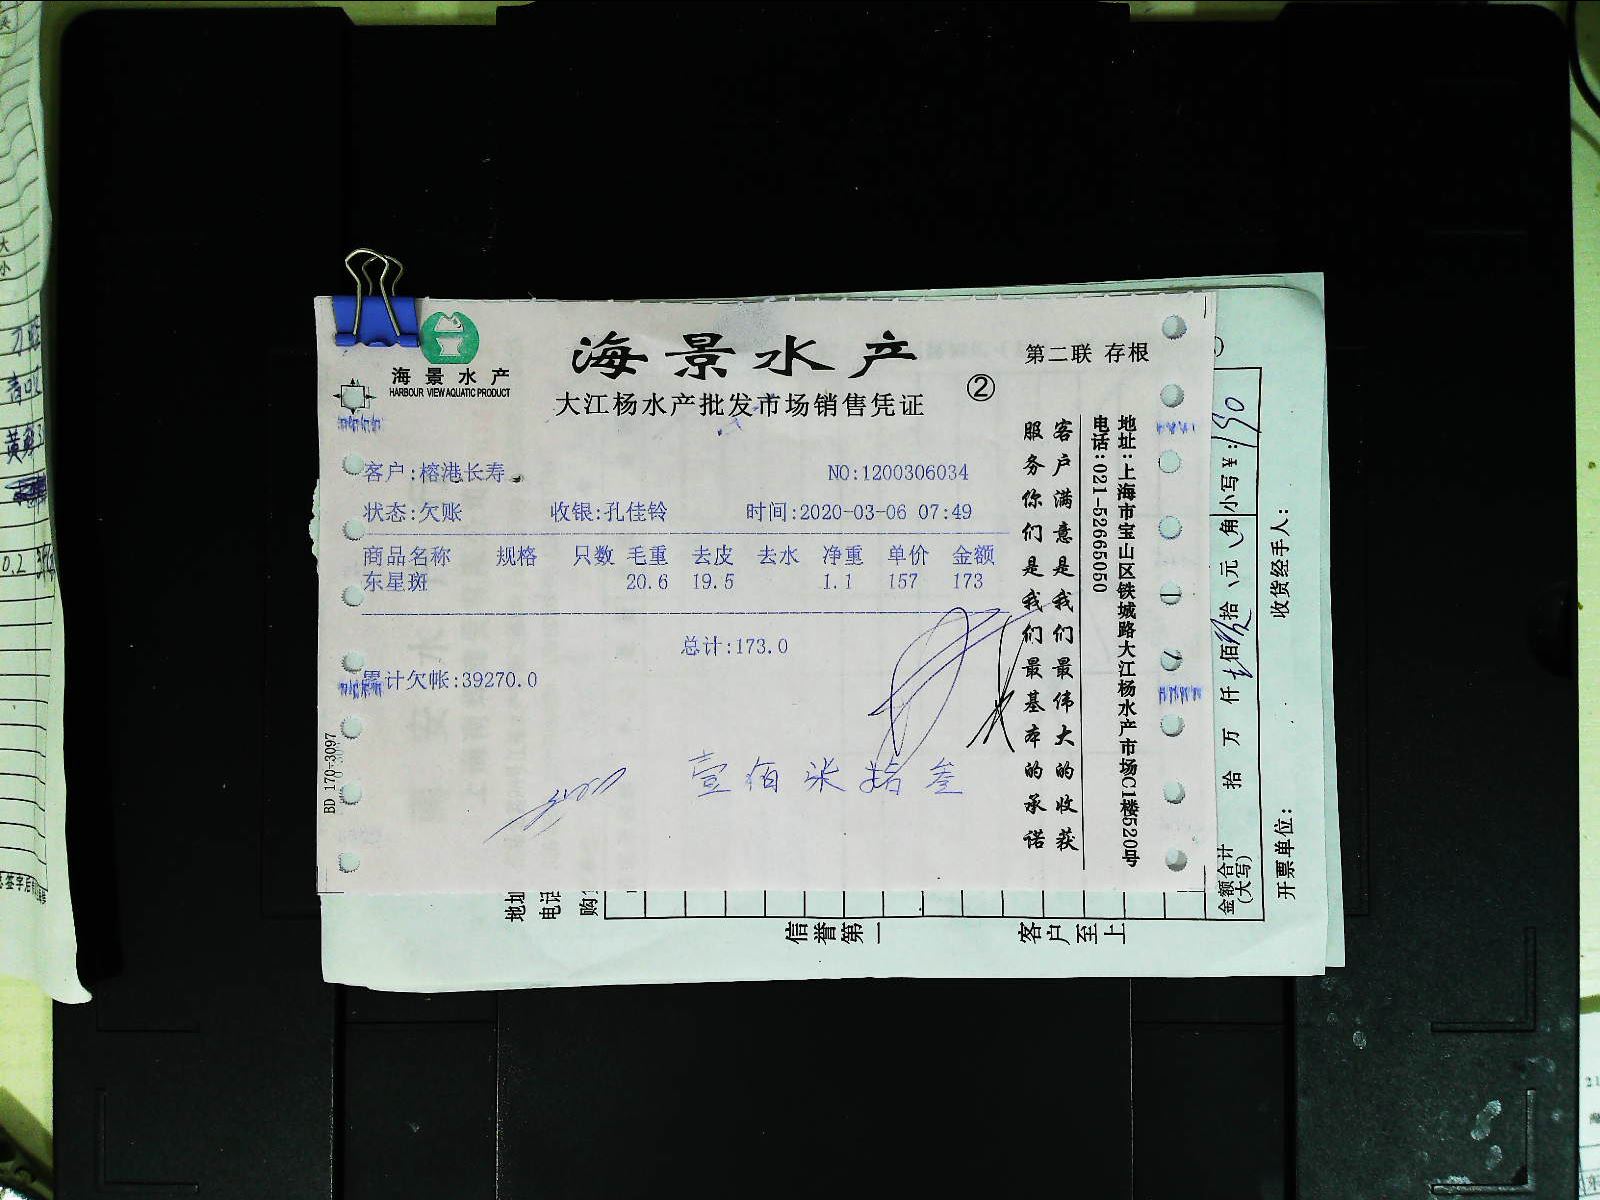 海景水产
HARBOUR VIEW AQUATIC PRODUCT
海景水产
大江杨水产批发市场销售凭证
②
第二联 存根
客户:榕港长寿
NO:1200306034
状态:欠账 收银:孔佳铃 时间:2020-03-06 07:49
商品名称 规格 只数 毛重 去皮 去水 净重 单价 金额
东星斑 20.6 19.5 1.1 157 173
总计:173.0
累计欠帐:39270.0
壹佰柒拾叁
BD 170-3097
客户满意是我们最伟大的收获
服务你们是我们最基本的承诺
地址:上海市宝山区铁城路大江杨水产市场C1楼520号
电话:021-52665050
地址
电话
购
信誉第一
客户至上
金额合计
(大写)
拾 万 仟 佰 拾 元 角 小写¥:
开票单位:
收货经手人: